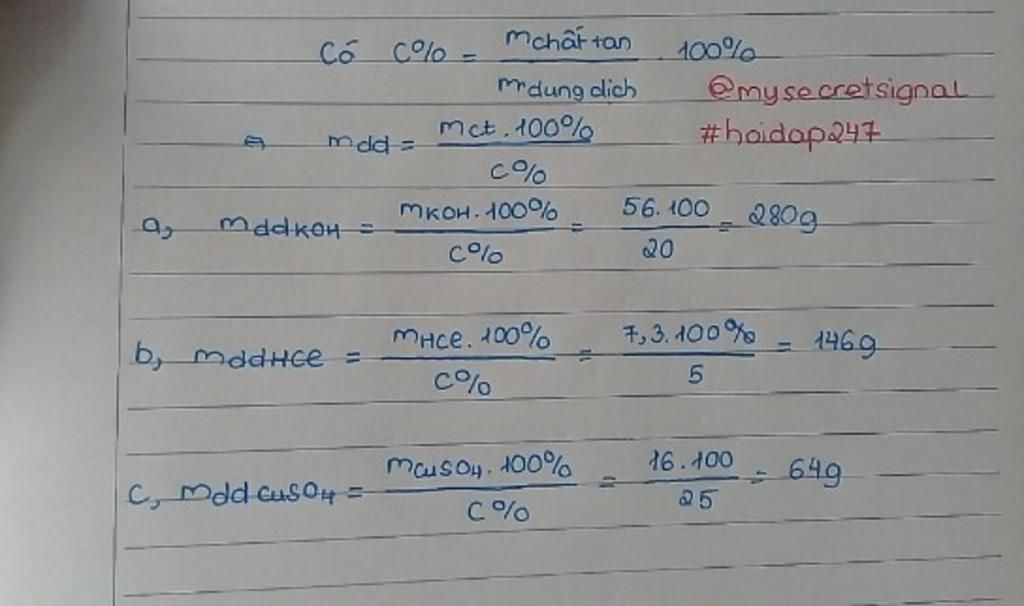 Có C% = mchất tan / mdung dịch . 100%
@mysecretsignal
⇔ mdd = mct . 100% / C%
#hoidap247
a, mddKOH = mKOH . 100% / C% = 56.100 / 20 = 280g
b, mddHCl = mHCl . 100% / C% = 7,3.100% / 5 = 146g
c, mddCuSO4 = mCuSO4 . 100% / C% = 16.100 / 25 = 64g